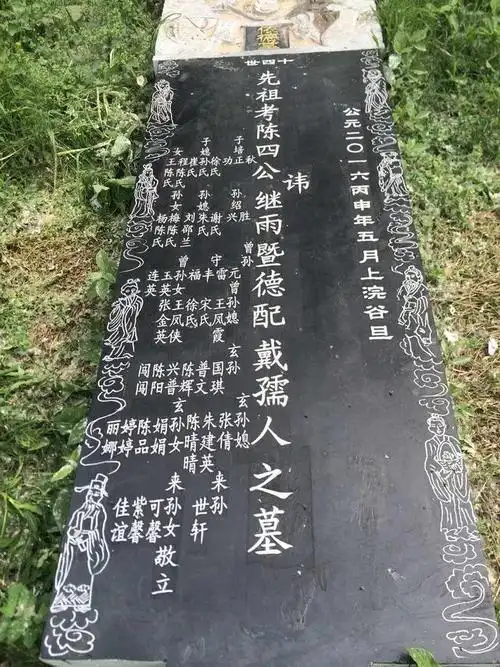 十四世
公元二〇一六丙申年五月上浣谷旦
先祖考陈四公讳继雨暨德配戴孺人之墓
子培正
秋
功
子媳
徐氏
孙氏
崔氏
程氏
女
陈氏
王陈氏
孙绍兴
胜
孙媳
谢氏
朱氏
刘邵兰
孙女
梅陈氏
杨陈氏
曾孙
元
雷
守丰
福
曾孙媳
王凤霞
宋氏
徐氏
王凤侠
张金英
曾孙女
玉英
连英
玄孙
国琪
普文
陈辉
兴普
陈阳
闯
玄孙媳
张倩
朱建英
陈晴晴
玄孙女
娟娟
陈品
婷婷
丽娜
来孙
世轩
来孙女
可馨
紫馨
佳谊
敬立